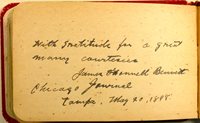 With Gratitude for a great
many courtesies
James O'Donnell Bennett
Chicago Journal
Tampa, May 20, 1898.